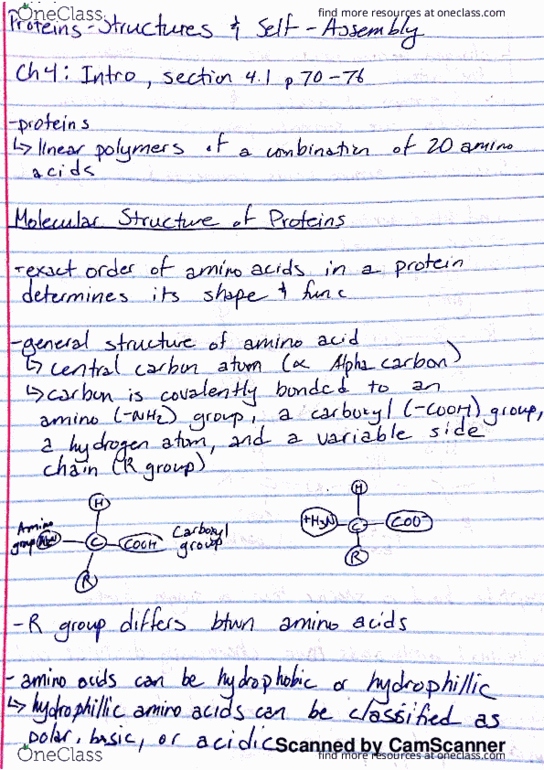 OneClass
find more resources at oneclass.com
Proteins-Structures & Self-Assembly
Ch4: Intro, section 4.1 p70-76
-proteins
↳ linear polymers of a combination of 20 amino
acids
Molecular Structure of Proteins
-exact order of amino acids in a protein
determines its shape & func
-general structure of amino acid
↳ central carbon atom (∝ Alpha carbon)
↳ carbon is covalently bonded to an
amino (-NH2) group, a carboxyl (-COOH) group,
a hydrogen atom, and a variable side
chain (R group)
H
H
Amino
group
C
COOH
Carboxyl
group
+H3N
C
COO-
R
R
- R group differs btwn amino acids
- amino acids can be hydrophobic or hydrophillic
↳ hydrophillic amino acids can be classified as
polar, basic, or acidic
Scanned by CamScanner
OneClass
find more resources at oneclass.com